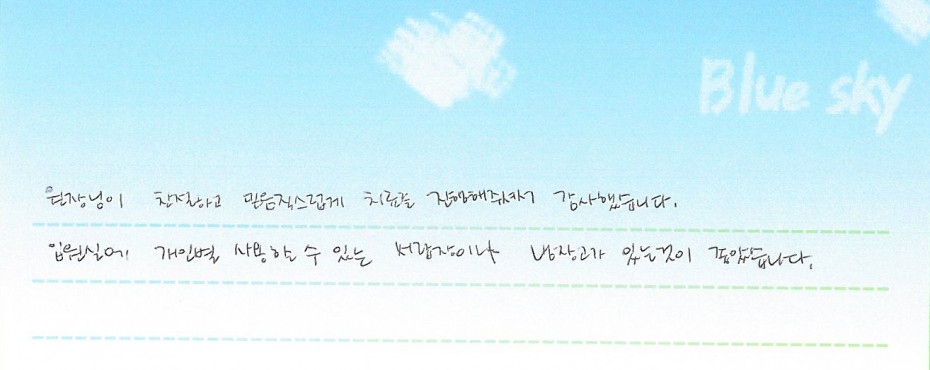 Blue sky
원장님이 친절하고 믿음직스럽게 치료를 진행해주셔서 감사했습니다.
입원실에 개인별 사용할 수 있는 서랍장이나 냉장고가 있는것이 좋았습니다.